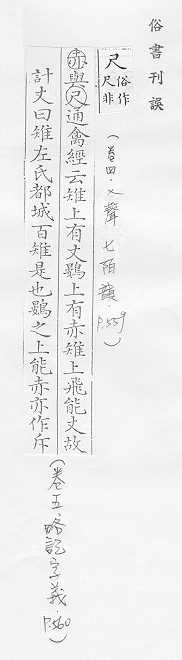 俗書刊誤
尺俗作尺非(卷四.入聲.七陌韻.P.559)
赤與尺通禽經云雉上有丈鷃上有赤雉上飛能丈故
計丈曰雉左氏都城百雉是也鷃之上能赤亦作斥(卷五.略記字義.P.560)